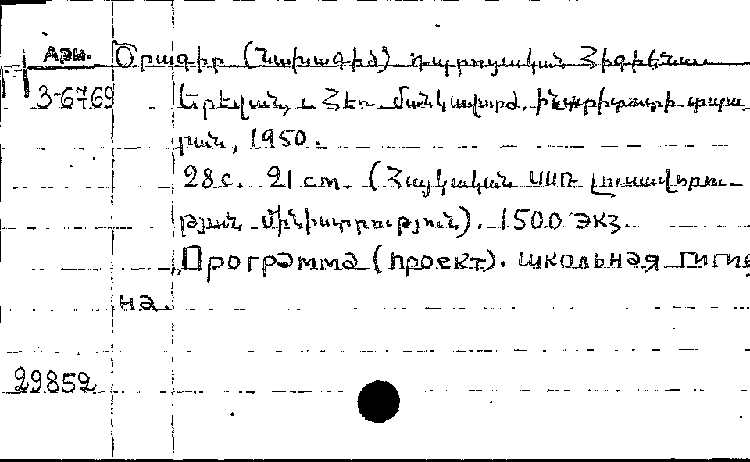 Арм. Ծրագիր (Նախագիծ) դպրոցական Հիգիենա.
3-6769 Երեվան, Հեռ մանկավարժ. ինստիտուտի տպա
րան, 1950.
28 с. 21 cm. (Հայկական ՍՍՌ Լուսավորու-
թյան մինիստրություն). 1500 экз.
Программа (проект). школьная гигие
на.
29852